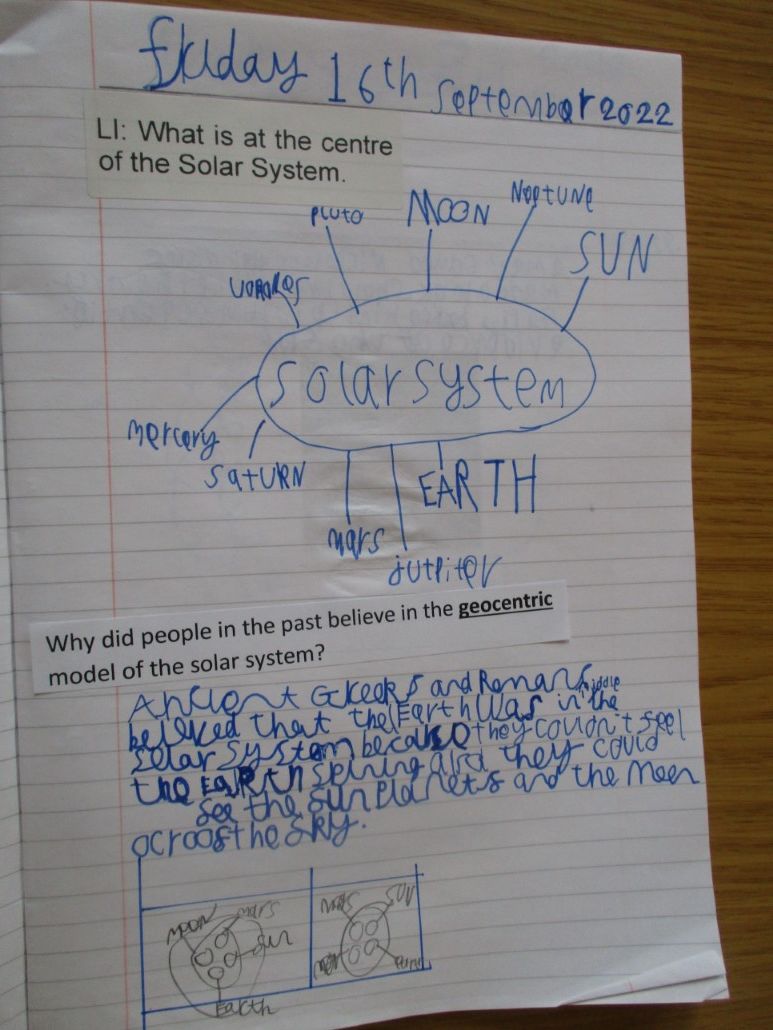 friday 16th september 2022
LI: What is at the centre
of the Solar System.
Pluto MOON NePtUNe
SUN
solar system
mercery
SatURN
EARTH
mars
jutpiter
Why did people in the past believe in the geocentric
model of the solar system?
Ancient Greeks and Romans
beleved that the Earth was in the middle
solar system because they couldn't feel
the EARTH spining and they could
see the sun Planets and the moon
acroos the sky.
moon mars
sun
Earth
mars SUN